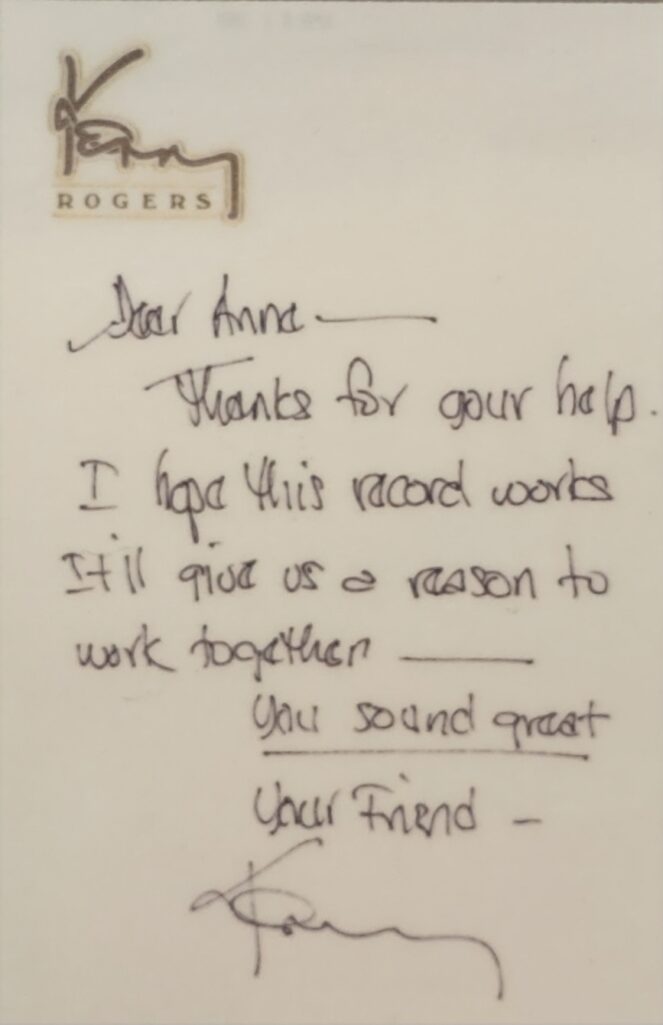 Kenny
ROGERS
Dear Anne —
Thanks for your help.
I hope this record works
It'll give us a reason to
work together —
You sound great
Your Friend -
Kenny